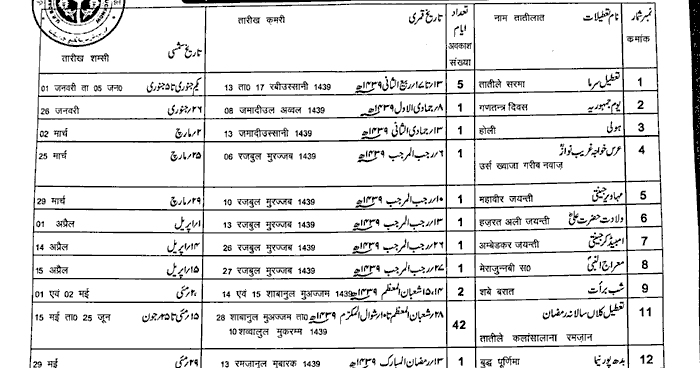 तारीख शम्सी تاریخ شمسی तारीख क़मरी تاریخ قمری तादाद تعداد ایام अवकाश संख्या नाम तातीलात نام تعطیلات نمبر شمار कमांक
01 जनवरी ता 05 जन0 یکم جنوری تا ۵ جنوری 13 ता0 17 रबीउस्सानी 1439 ۱۳ تا ۱۷ ربیع الثانی ۱۴۳۹ھ 5 तातीले सरमा تعطیل سرما 1
26 जनवरी ۲۶ جنوری 08 जमादीउल अव्वल 1439 ۸ جمادی الاول ۱۴۳۹ھ 1 गणतन्त्र दिवस یوم جمہوریہ 2
02 मार्च ۲ مارچ 13 जमादीउस्सानी 1439 ۱۳ جمادی الثانی ۱۴۳۹ھ 1 होली ہولی 3
25 मार्च ۲۵ مارچ 06 रजबुल मुरज्जब 1439 ۶ رجب المرجب ۱۴۳۹ھ 1 عرس خواجہ غریب نواز 4
उर्स ख्वाजा गरीब नवाज़
29 मार्च ۲۹ مارچ 10 रजबुल मुरज्जब 1439 ۱۰ رجب المرجب ۱۴۳۹ھ 1 महावीर जयन्ती مہاویر جینتی 5
01 अप्रैल ۱ اپریل 13 रजबुल मुरज्जब 1439 ۱۳ رجب المرجب ۱۴۳۹ھ 1 हज़रत अली जयन्ती ولادت حضرت علی 6
14 अप्रैल ۱۴ اپریل 26 रजबुल मुरज्जब 1439 ۲۶ رجب المرجب ۱۴۳۹ھ 1 अम्बेडकर जयन्ती امبیڈکر جینتی 7
15 अप्रैल ۱۵ اپریل 27 रजबुल मुरज्जब 1439 ۲۷ رجب المرجب ۱۴۳۹ھ 1 मेराजुन्नबी स0 معراج النبی 8
01 एवं 02 मई ۲ مئی 14 एवं 15 शाबानुल मुअज्जम 1439 ۱۴، ۱۵ شعبان المعظم ۱۴۳۹ھ 2 शबे बरात شب برأت 9
15 मई ता0 25 जून ۱۵ مئی تا ۲۵ جون 28 शाबानुल मुअज्जम ता0 ۲۸ شعبان المعظم تا ۱۰ شوال المکرم ۱۴۳۹ھ 42 تعطیل کلاں سالانہ رمضان 11
10 शव्वालुल मुकरम्म 1439 तातीले कलांसालाना रमज़ान
29 मई ۲۹ مئی 13 रमजानुल मुबारक 1439 ۱۳ رمضان المبارک ۱۴۳۹ھ 1 बुद्ध पूर्णिमा بدھ پورنیما 12